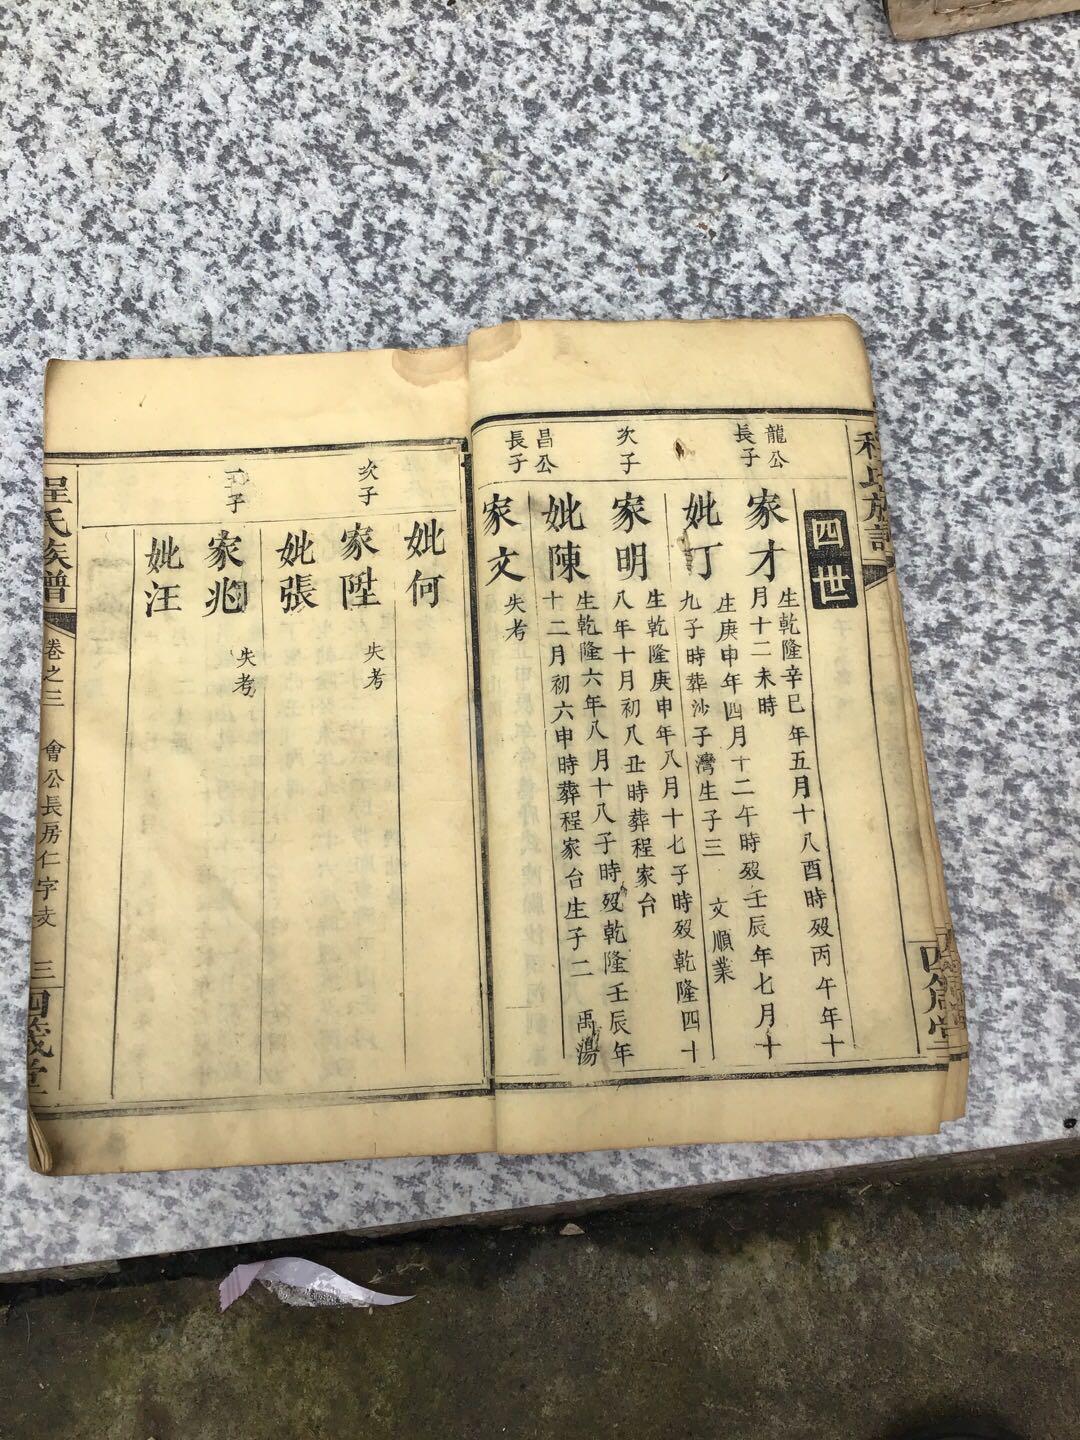 程氏族譜
四世
龍公
長子
家才
生乾隆辛巳年五月十八酉時殁丙午年十
月十二未時
妣丁
生庚申年四月十二午時殁壬辰年七月十
九子時葬沙子灣生子三 文順業
次子
家明
生乾隆庚申年八月十七子時殁乾隆四十
八年十月初八丑時葬程家台
妣陳
生乾隆六年八月十八子時殁乾隆壬辰年
十二月初六申時葬程家台生子二 禹湯
昌公
長子
家文
失考
妣何
次子
家陞
失考
妣張
三子
家兆
失考
妣汪
程氏族譜 卷之三 會公長房仁字支 三 四箴堂